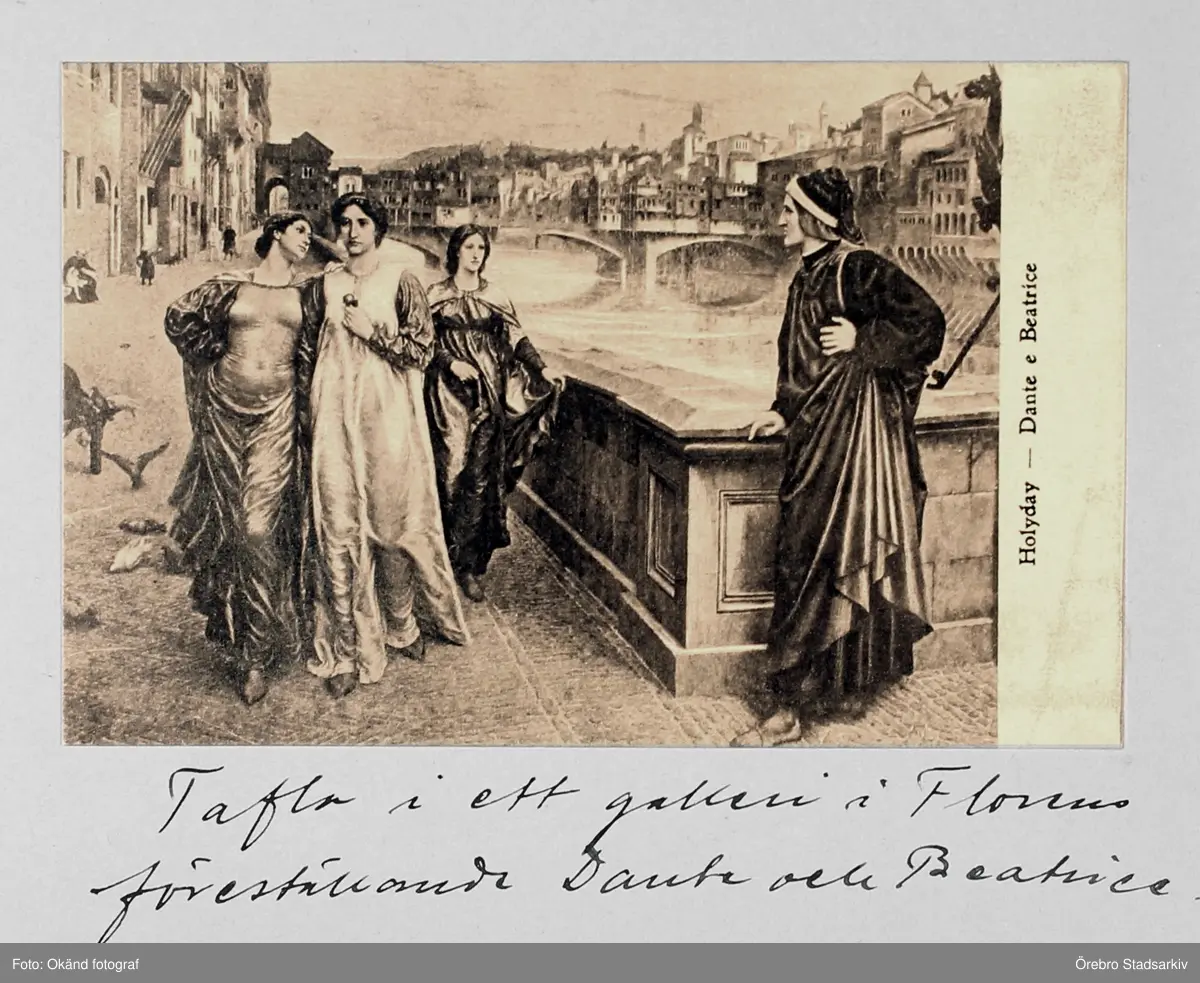 Holyday — Dante e Beatrice
Tafla i ett galleri i Florens
föreställande Dante och Beatrice.
Foto: Okänd fotograf
Örebro Stadsarkiv